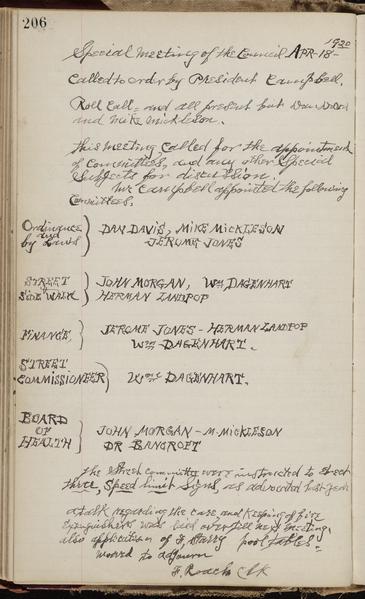 206
1920
Special meeting of the Council APR-18-
Called to order by President Campbell.
Roll Call - and all present but Dan Davis
and Mike Mickleson.
This meeting called for the appointment
of Committees, and any other Special
Subjects for discussion.
Mr Campbell appointed the following
Committees.
Ordinance and by Laws } DAN DAVIS, MIKE MICKLESON
JEROME JONES
STREET & Side WALK } JOHN MORGAN, Wm DAGENHART
HERMAN LANDPOP
FINANCE } JEROME JONES - HERMAN LANDPOP
Wm DAGENHART.
STREET COMMISSIONER } Wm DAGENHART.
BOARD OF HEALTH } JOHN MORGAN - M. MICKLESON
DR BANCROFT
The street committy were instructed to erect
three, Speed limit Signs, as advocated last year
a talk regarding the care and keeping of fire
extinguishers was laid over till next meeting,
also application of F Starry pool tables
moved to adjourn
F. Roach Clk